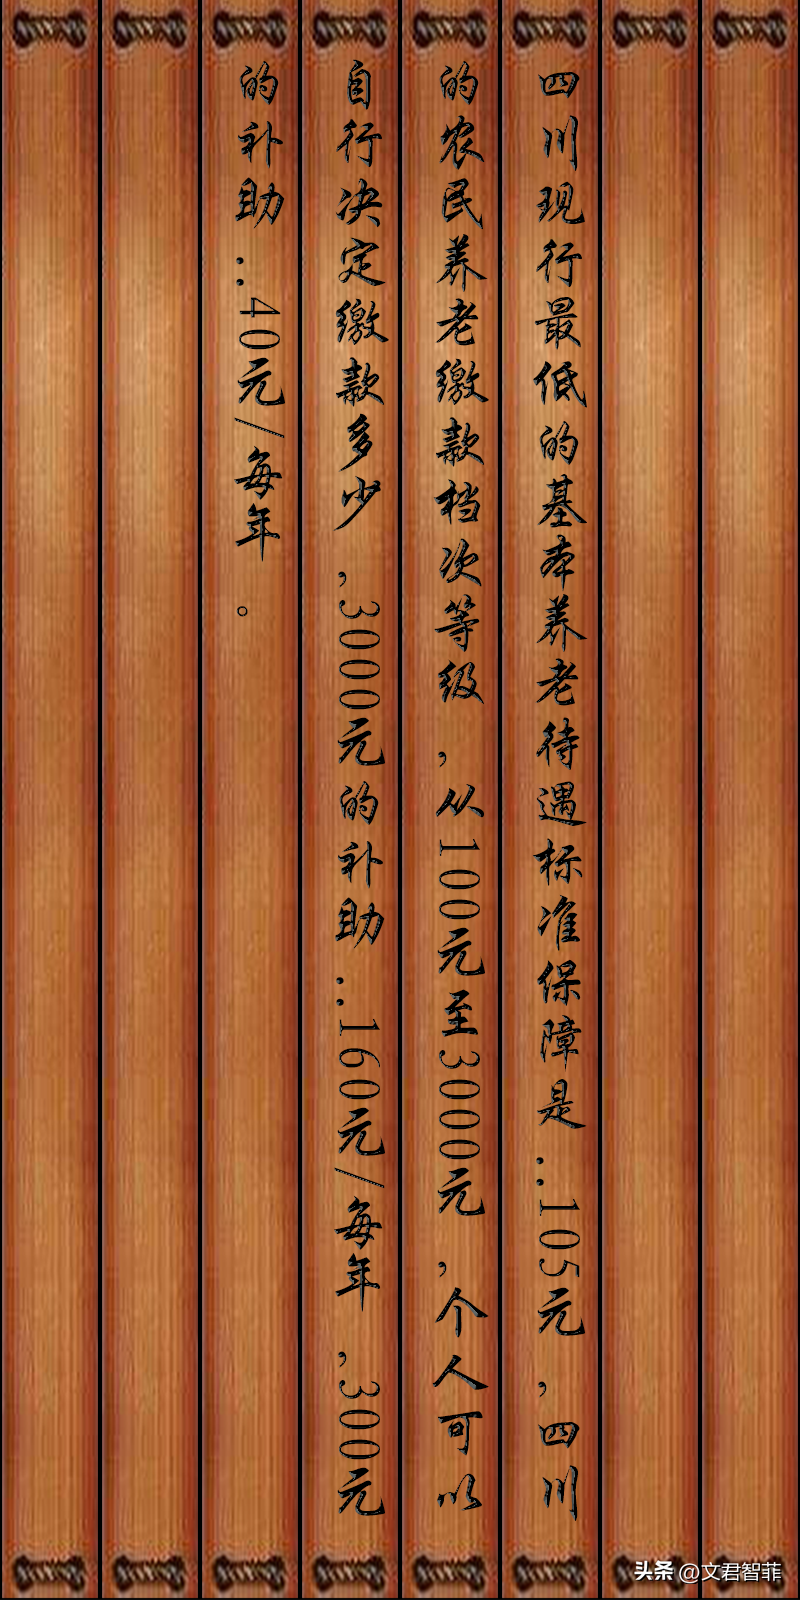 四川现行最低的基本养老待遇标准保障是..105元，四川
的农民养老缴款档次等级，从100元至3000元，个人可以
自行决定缴款多少，3000元的补助..160元/每年，300元
的补助..40元/每年。
头条 @文君智菲